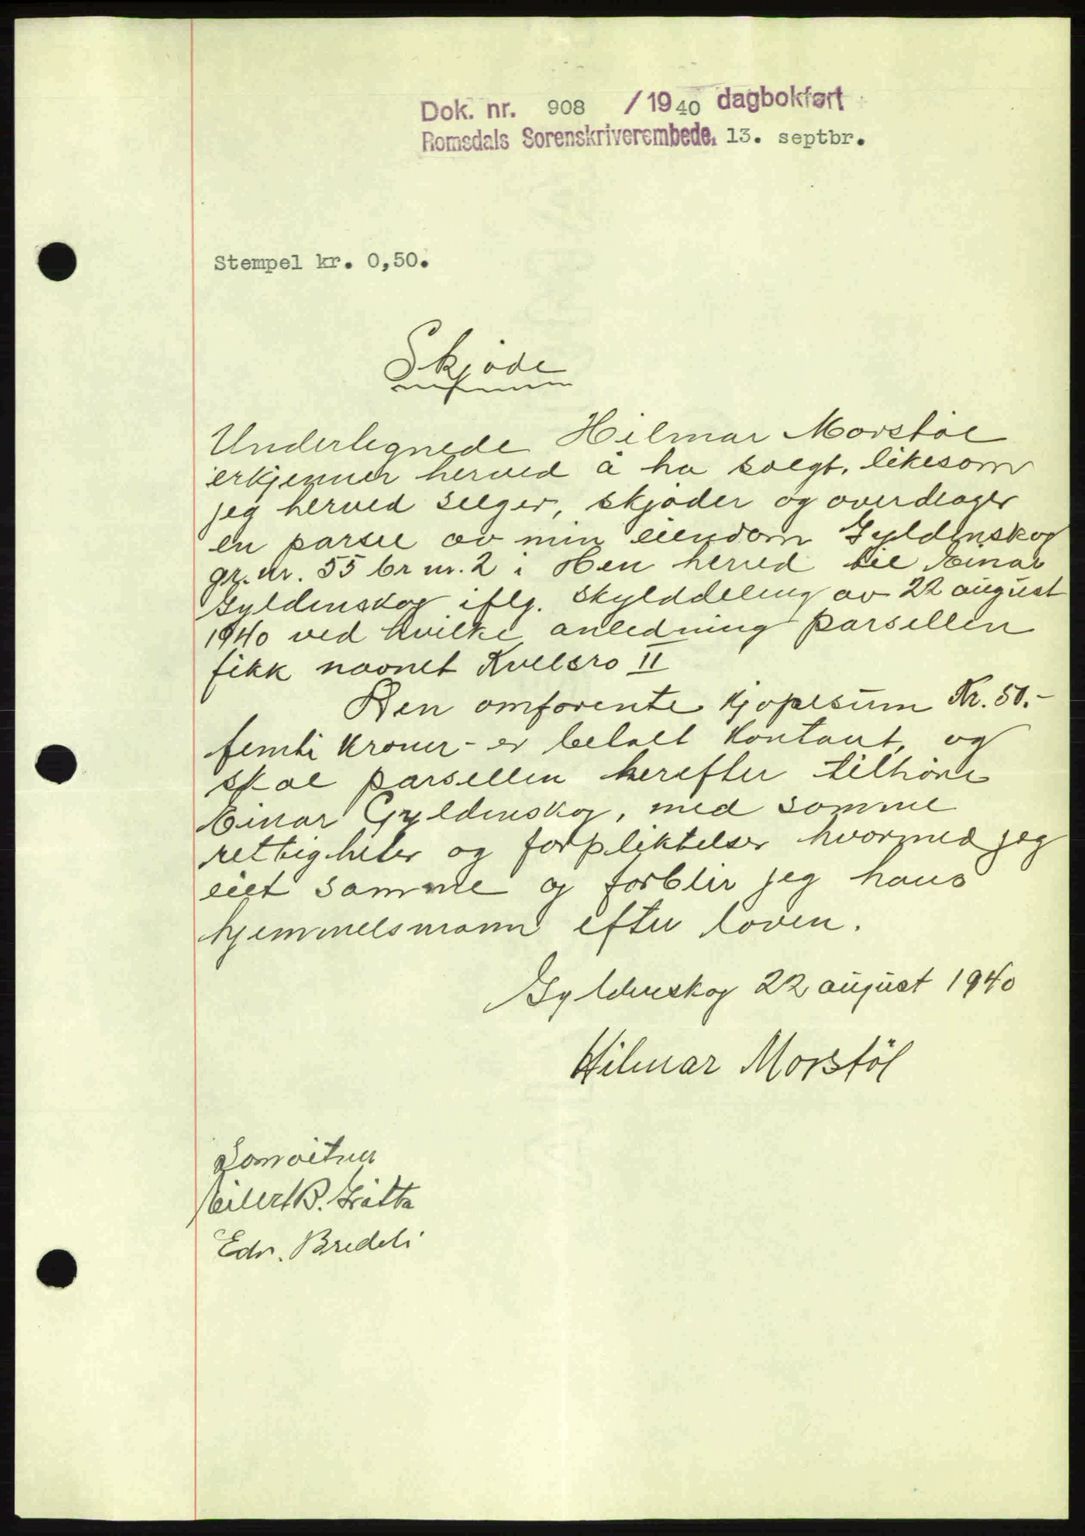 Dok. nr. 908 /1940 dagbokført
Romsdals Sorenskriverembede. 13. septbr.
Stempel kr. 0,50.
Skjøde
Undertegnede Hilmar Morstøl
erkjenner herved å ha solgt, likesom
jeg herved selger, skjøder og overdrager
en parsel av min eiendom Gyldenskog
gr. nr. 55 br nr. 2 i Hen herred til Einar
Gyldenskog iflg. skylddeling av 22 august
1940 ved hvilke anledning parsellen
fikk navnet Kvelsro II
Den omforente kjøpesum Kr. 50.-
femti kroner - er betalt kontant og
skal parsellen herefter tilhøre
Einar Gyldenskog, med samme
rettigheter og forpliktelser hvormed jeg
eiet samme og forblir jeg hans
hjemmelsmann efter loven.
Gyldenskog 22 august 1940
Hilmar Morstøl
Som vitner
Eilert B. Gråtta
Edv. Bredeli